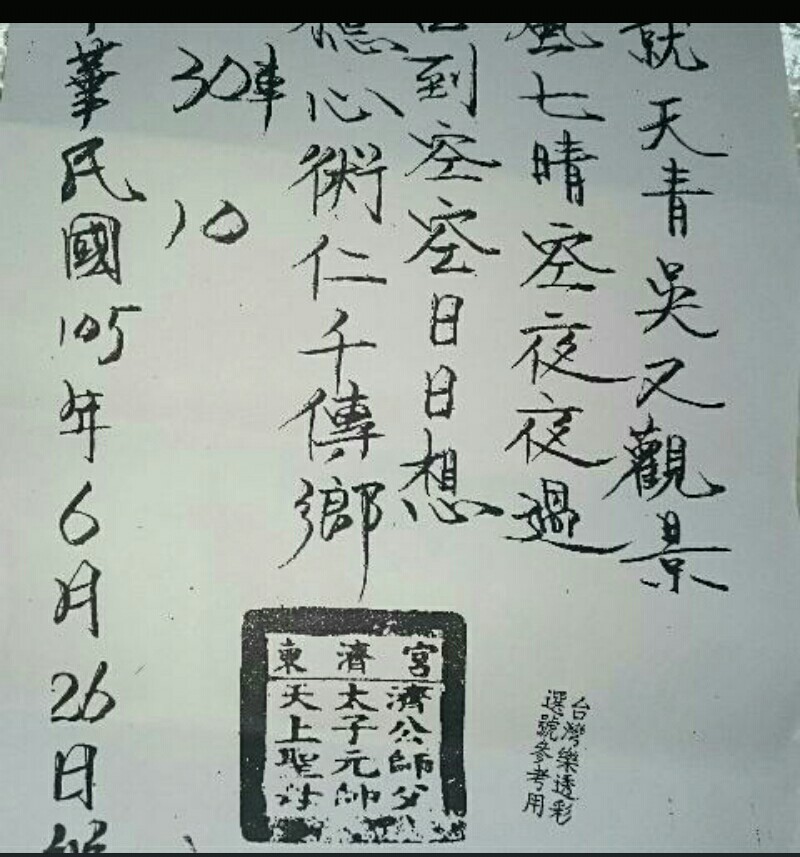 就天青吳又觀景
風七晴空夜夜過
到空空日日想
心術仁千傳鄉
30車
10
華民國105年6月26日
東濟宮
濟公師父
太子元帥
天上聖母
台灣樂透彩
選號參考用